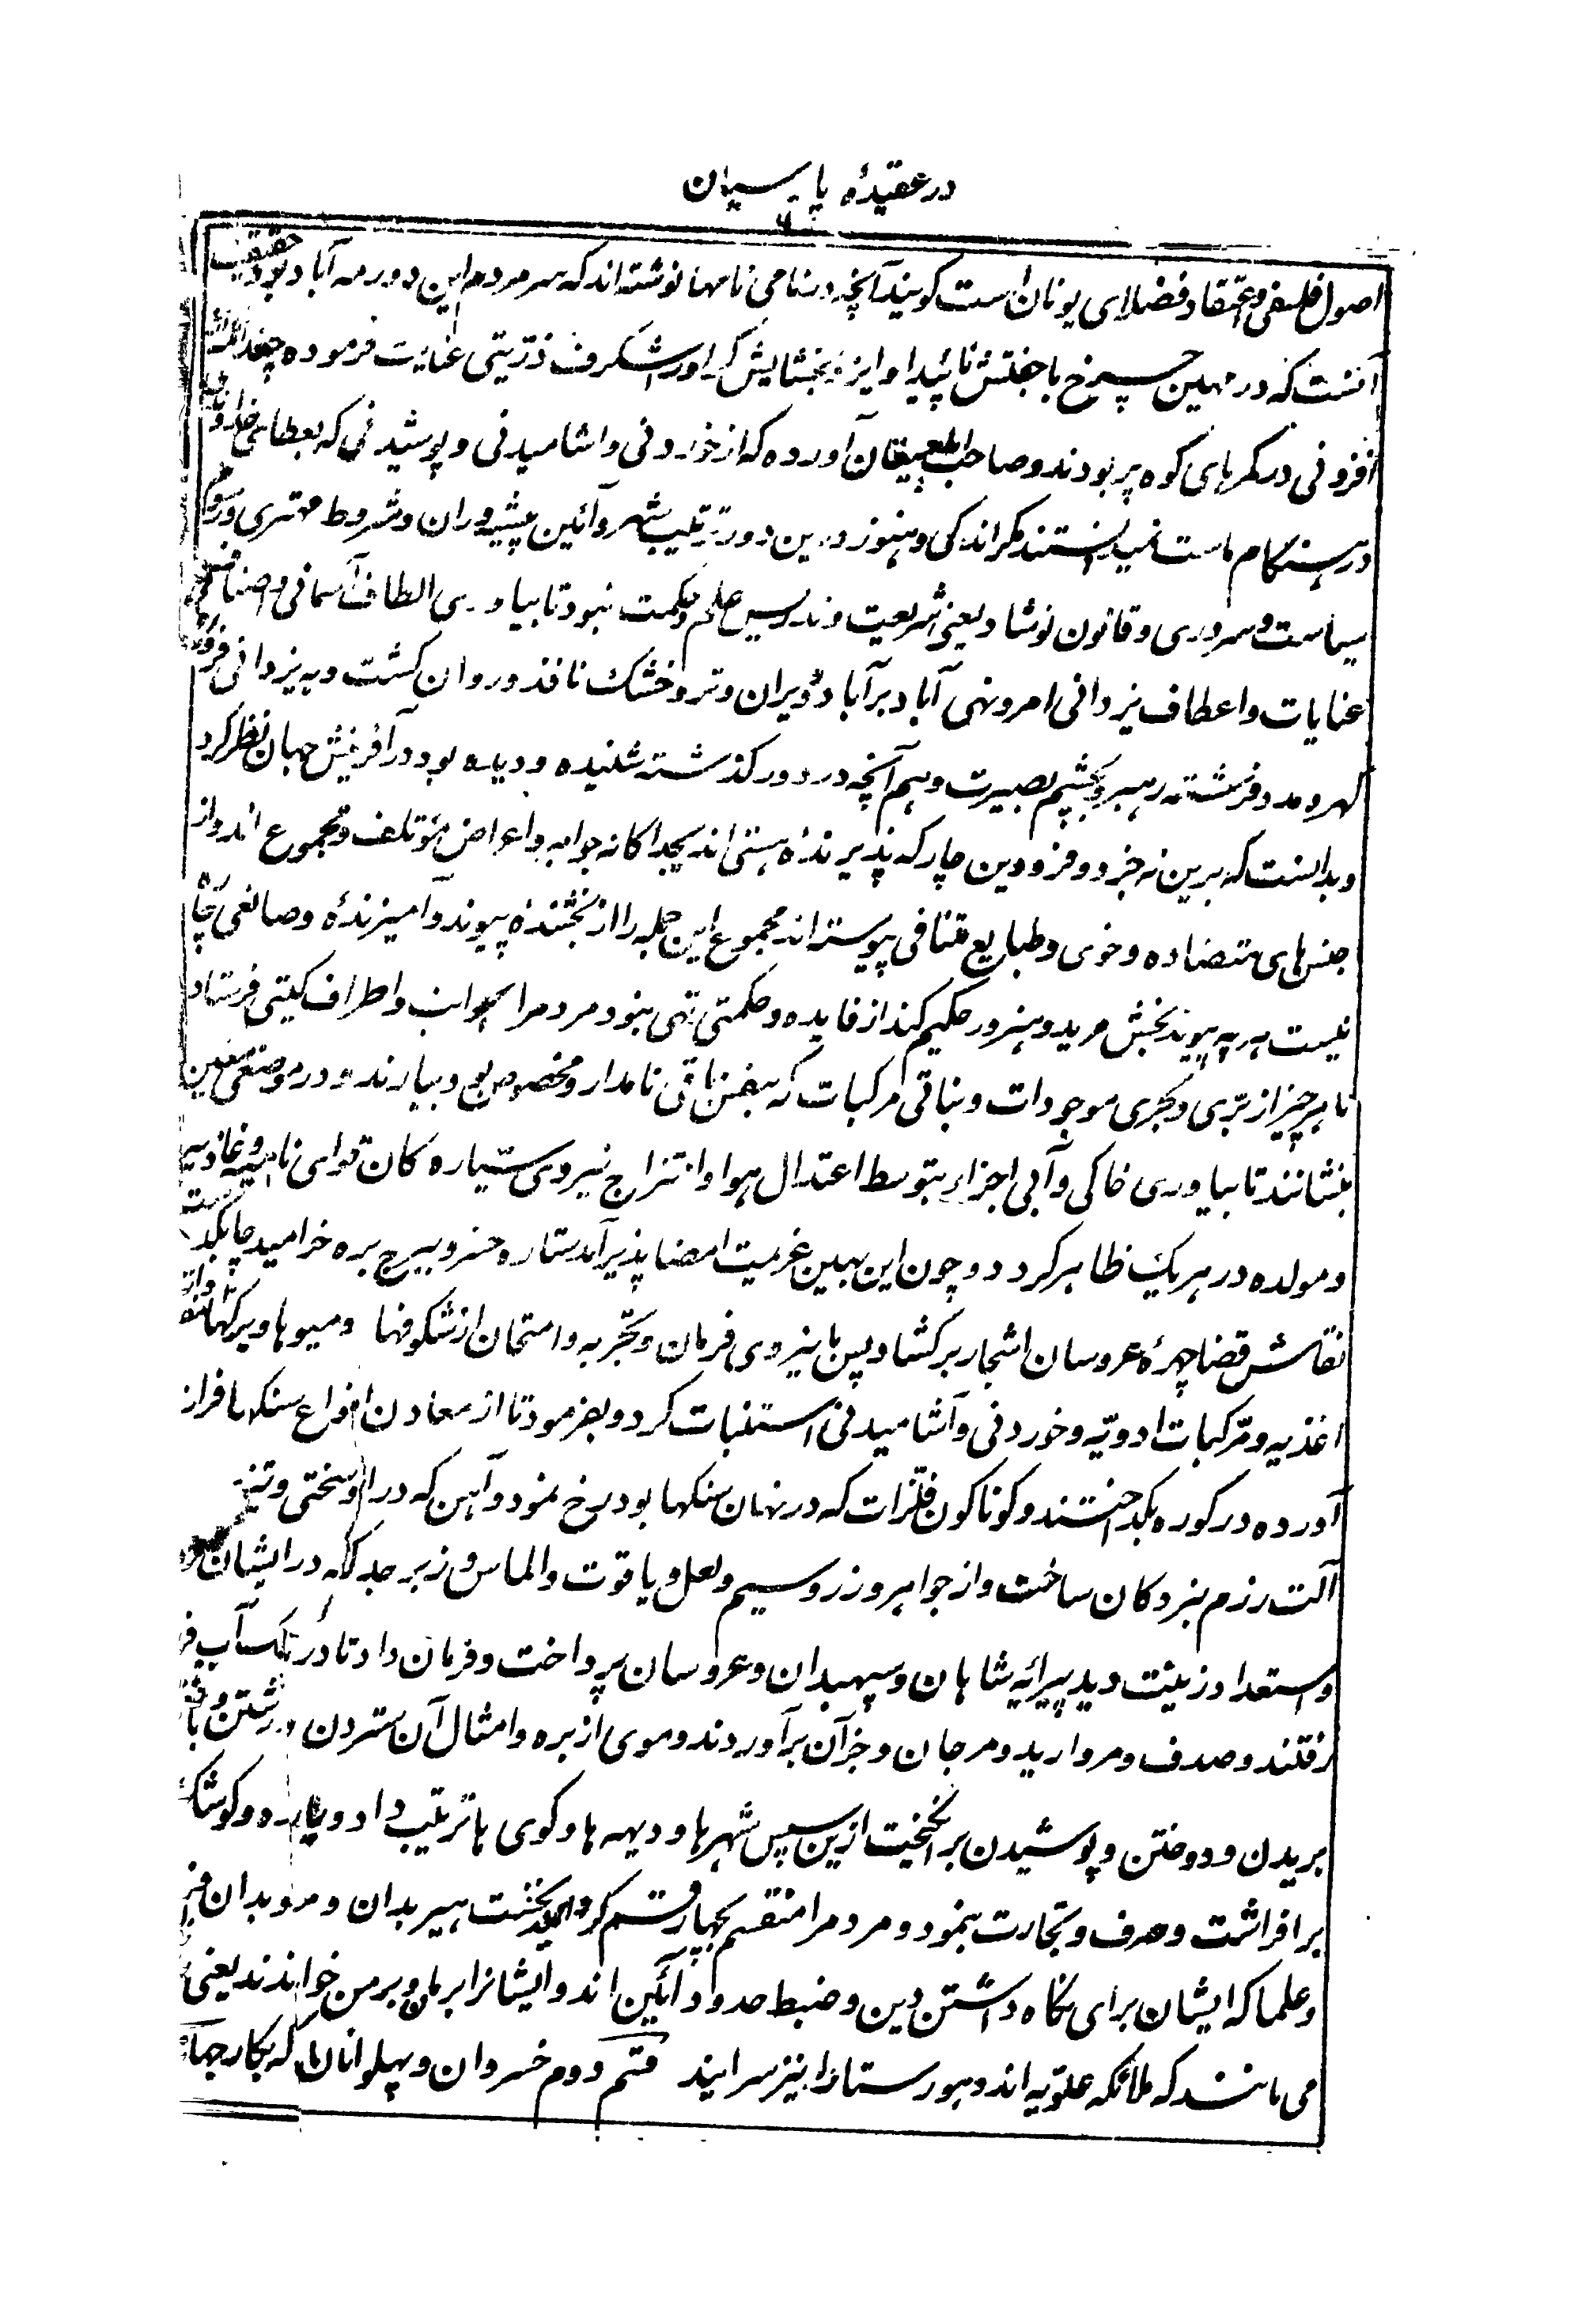 در عقیدۀ پارسیان
اصول فلسفی و اعتقاد فضلای یونان است کویند آنچه در نامی نامها نوشته‌اند که سر مردم این دور مه آباد بود حقیقت
آنست که در مهین چرخ با جفتش نائید او ایزد بخشایش کر اورا شکرف ذریتی عنایت فرموده
افزونی در کمرهای کوه پر بودند و صاحب آورده که از خوردنی و اشامیدنی و پوشیدنی که بعطای
در هنکام ماست نمیدانستند مکر اندکی و هنوز درین دور ترتیب شهر و آئین پیشه‌وران و شروط مهتری و رسوم
سیاست و سروری و قانون نوشاد یعنی شریعت و تدریس علم و حکمت نبود تا بیاوری الطاف آسمانی و اصناف
عنایات و اعطاف یزدانی امر و نهی آباد بر آباد و ویران و تر و خشک نافذ و روان کشت و به یزدانی
کهر و مدد فرشته رهبر و بچشم بصیرت و هم آنچه در دور کذشته شنیده و دیده بود در آفرینش جهان نظر کرد
و بدانست که برین نه جزو و فزودین چار که پذیرندۀ هستی‌اند بجداکانه جواهر و اعراض مؤتلف و مجموع اند و از
جنس‌های متضاده و خوی و طبایع متنافی پیوسته‌اند مجموع این جمله را از بخشندۀ پیوند و آمیزندۀ و صانعی چاره
نیست هر چه پیوند بخش مرید و هنرور حکیم کند از فایده و حکمتی تهی نبود مردم را بجوانب و اطراف کیتی فرستاد
تا هر چیز از برّی و بحری موجودات و نباتی مرکبات که نامدار و مخصوص بود بیارند و در موضعی معین
بنشانند تا بیاوری خاکی و آبی اجزاء بتوسط اعتدال هوا و امتزاج نیروی ستیاره کان قوای نامیه و غاذیه
و مولده در هر یک ظاهر کردد و چون این بهین عزیمت امضا پذیر آمد ستاره خسرو ببرج بره خرامید چابکدست
نقاش قضا چهرۀ عروسان اشجار برکشاد پس با نیروی فرمان و تجربه و امتحان از شکوفها و میوها و برکها
اغذیه و مرکبات ادویه و خوردنی و آشامیدنی استنبات کرد و بفرمود تا از معادن انواع سنکها فراز
آورده در کوره بکداختند و کوناکون فلزات که در نهان سنکها بود رخ نمود و آهن که در او سختی و
آلت رزم نبردکان ساخت و از جواهر و زر و سیم و لعل و یاقوت و الماس و زبرجد که در ایشان
استعداد زینت دید پیرائیه شاهان و سپهبدان و عروسان پرداخت و فرمان داد تا در تک آب فرو
رفتند و صدف و مروارید و مرجان و جز آن برآوردند و موی از بره و امثال آن ستردن و رشتن و بافتن
بریدن و دوختن و پوشیدن برانکیخت ازین سپس شهرها و دیهه‌ها و کوی‌ها ترتیب داد و باره و کوشک
برافراشت و صرف و تجارت بنمود و مردم را منقسم بچهار قسم کردانید نخست هیربدان و موبدان
و علما که ایشان برای نکاه داشتن دین و ضبط حدود آئین‌اند و ایشانرا برمان و برمن خوانند یعنی
می مانند که ملائکه علویه‌اند و هورستارا نیز سرایند قسم دوم خسروان و پهلوانان که بکار